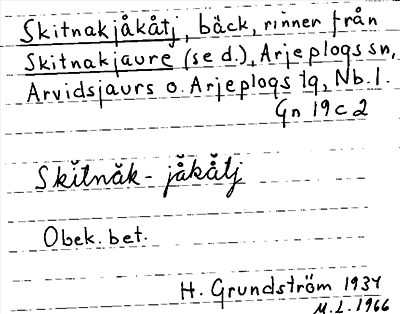 Skitnakjåkåtj, bäck, rinner från
Skitnakjaure (se d.), Arjeplogs sn,
Arvidsjaurs o. Arjeplogs tg, Nb.l.
Gn 19c2
Skĭtnăk-jå̆kå̆tj
Obek. bet.
H. Grundström 1934
M.L. 1966